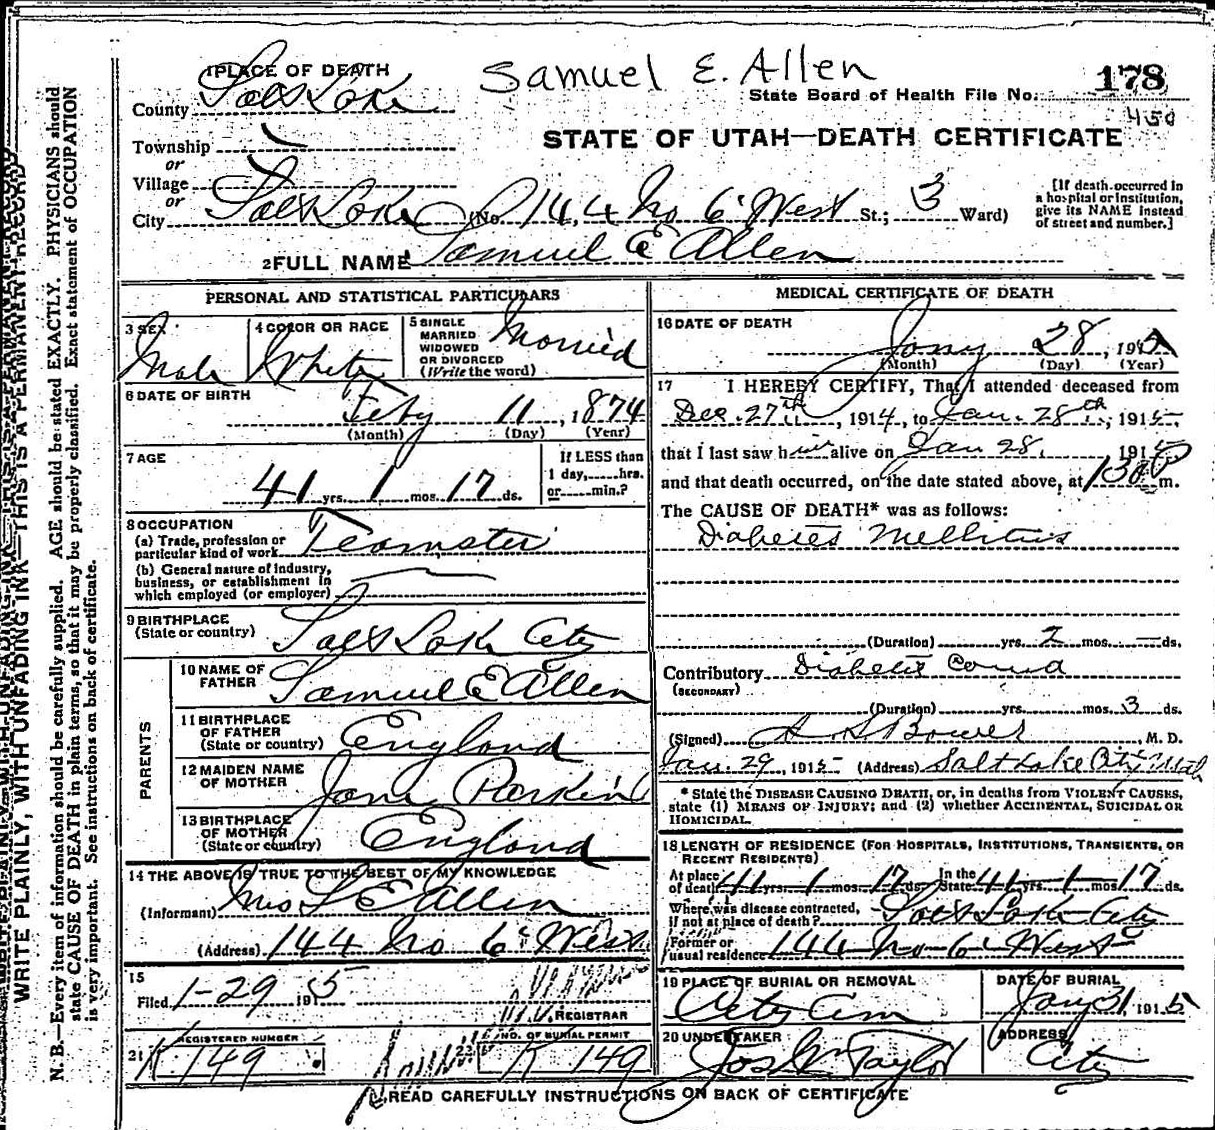 Samuel E. Allen
1 PLACE OF DEATH
County Salt Lake
State Board of Health File No. 178
450
Township
or
Village
or
City Salt Lake (No. 144 No 6" West St.; 3 Ward)
STATE OF UTAH—DEATH CERTIFICATE
[If death occurred in
a hospital or institution,
give its NAME instead
of street and number.]
2 FULL NAME Samuel E Allen
PERSONAL AND STATISTICAL PARTICULARS
3 SEX
Male
4 COLOR OR RACE
White
5 SINGLE
MARRIED
WIDOWED
OR DIVORCED
(Write the word)
Married
6 DATE OF BIRTH
Feby 11, 1874
(Month) (Day) (Year)
7 AGE
41 yrs. 1 mos. 17 ds.
If LESS than
1 day,......hrs.
or......min.?
8 OCCUPATION
(a) Trade, profession or
particular kind of work Teamster
(b) General nature of industry,
business, or establishment in
which employed (or employer)
9 BIRTHPLACE
(State or country) Salt Lake City
PARENTS
10 NAME OF
FATHER Samuel E Allen
11 BIRTHPLACE
OF FATHER
(State or country) England
12 MAIDEN NAME
OF MOTHER Jane Parkins
13 BIRTHPLACE
OF MOTHER
(State or country) England
14 THE ABOVE IS TRUE TO THE BEST OF MY KNOWLEDGE
(Informant) Mrs S E Allen
(Address) 144 No 6" West
15
Filed 1-29 1915
REGISTRAR
21 REGISTERED NUMBER
K 149
22 NO. OF BURIAL PERMIT
K 149
MEDICAL CERTIFICATE OF DEATH
16 DATE OF DEATH
Jany 28, 191
(Month) (Day) (Year)
17 I HEREBY CERTIFY, That I attended deceased from
Dec. 27th, 1914, to Jan. 28th, 1915,
that I last saw him alive on Jan 28, 1915
and that death occurred, on the date stated above, at 130 P m.
The CAUSE OF DEATH* was as follows:
Diabetes Mellitus
(Duration) yrs. 2 mos. — ds.
Contributory Diabetic Coma
(SECONDARY)
(Duration) yrs. mos. 3 ds.
(Signed) Bower M. D.
Jan. 29, 1915 (Address) Salt Lake City Utah
* State the DISEASE CAUSING DEATH, or, in deaths from VIOLENT CAUSES,
state (1) MEANS OF INJURY; and (2) whether ACCIDENTAL, SUICIDAL OR
HOMICIDAL.
18 LENGTH OF RESIDENCE (FOR HOSPITALS, INSTITUTIONS, TRANSIENTS, OR
RECENT RESIDENTS)
At place
of death 41 yrs. 1 mos. 17 ds. In the
State 41 yrs. 1 mos. 17 ds.
Where was disease contracted,
if not at place of death? Salt Lake City
Former or
usual residence 144 No 6" West
19 PLACE OF BURIAL OR REMOVAL
City Cem
DATE OF BURIAL
Jany 31, 1915
20 UNDERTAKER
Jos Wm Taylor
ADDRESS
City
READ CAREFULLY INSTRUCTIONS ON BACK OF CERTIFICATE
WRITE PLAINLY, WITH UNFADING INK—THIS IS A PERMANENT RECORD
N. B.—Every item of information should be carefully supplied. AGE should be stated EXACTLY. PHYSICIANS should
state CAUSE OF DEATH in plain terms, so that it may be properly classified. Exact statement of OCCUPATION
is very important. See instructions on back of certificate.